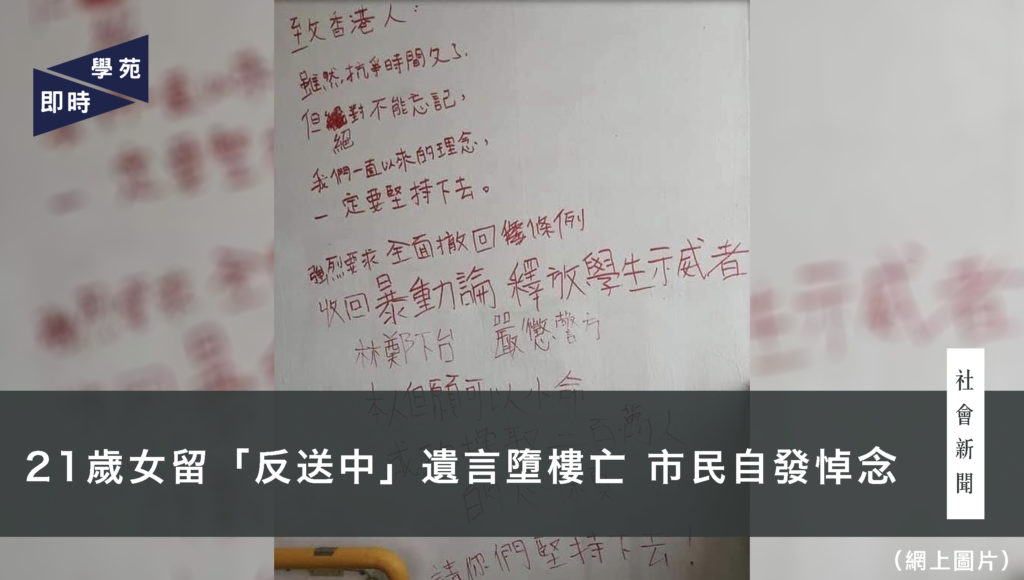 學苑
即時
致香港人:
雖然,抗爭時間久了.
但絕對不能忘記,
我們一直以來的理念,
一定要堅持下去。
強烈要求 全面撤回條例
收回暴動論 釋放學生示威者
林鄭下台 嚴懲警方
本人但願可以小命
二百萬人
請你們堅持下去!
21歲女留「反送中」遺言墮樓亡 市民自發悼念
社會新聞
(網上圖片)